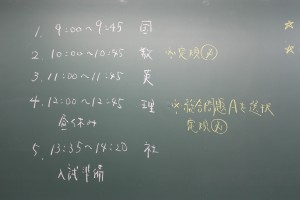 1. 9:00〜9:45 国
2. 10:00〜10:45 数 ※
3. 11:00〜11:45 英
4. 12:00〜12:45 理 ※総合問題Aを選択
昼休み
5. 13:35〜14:20 社
入試準備